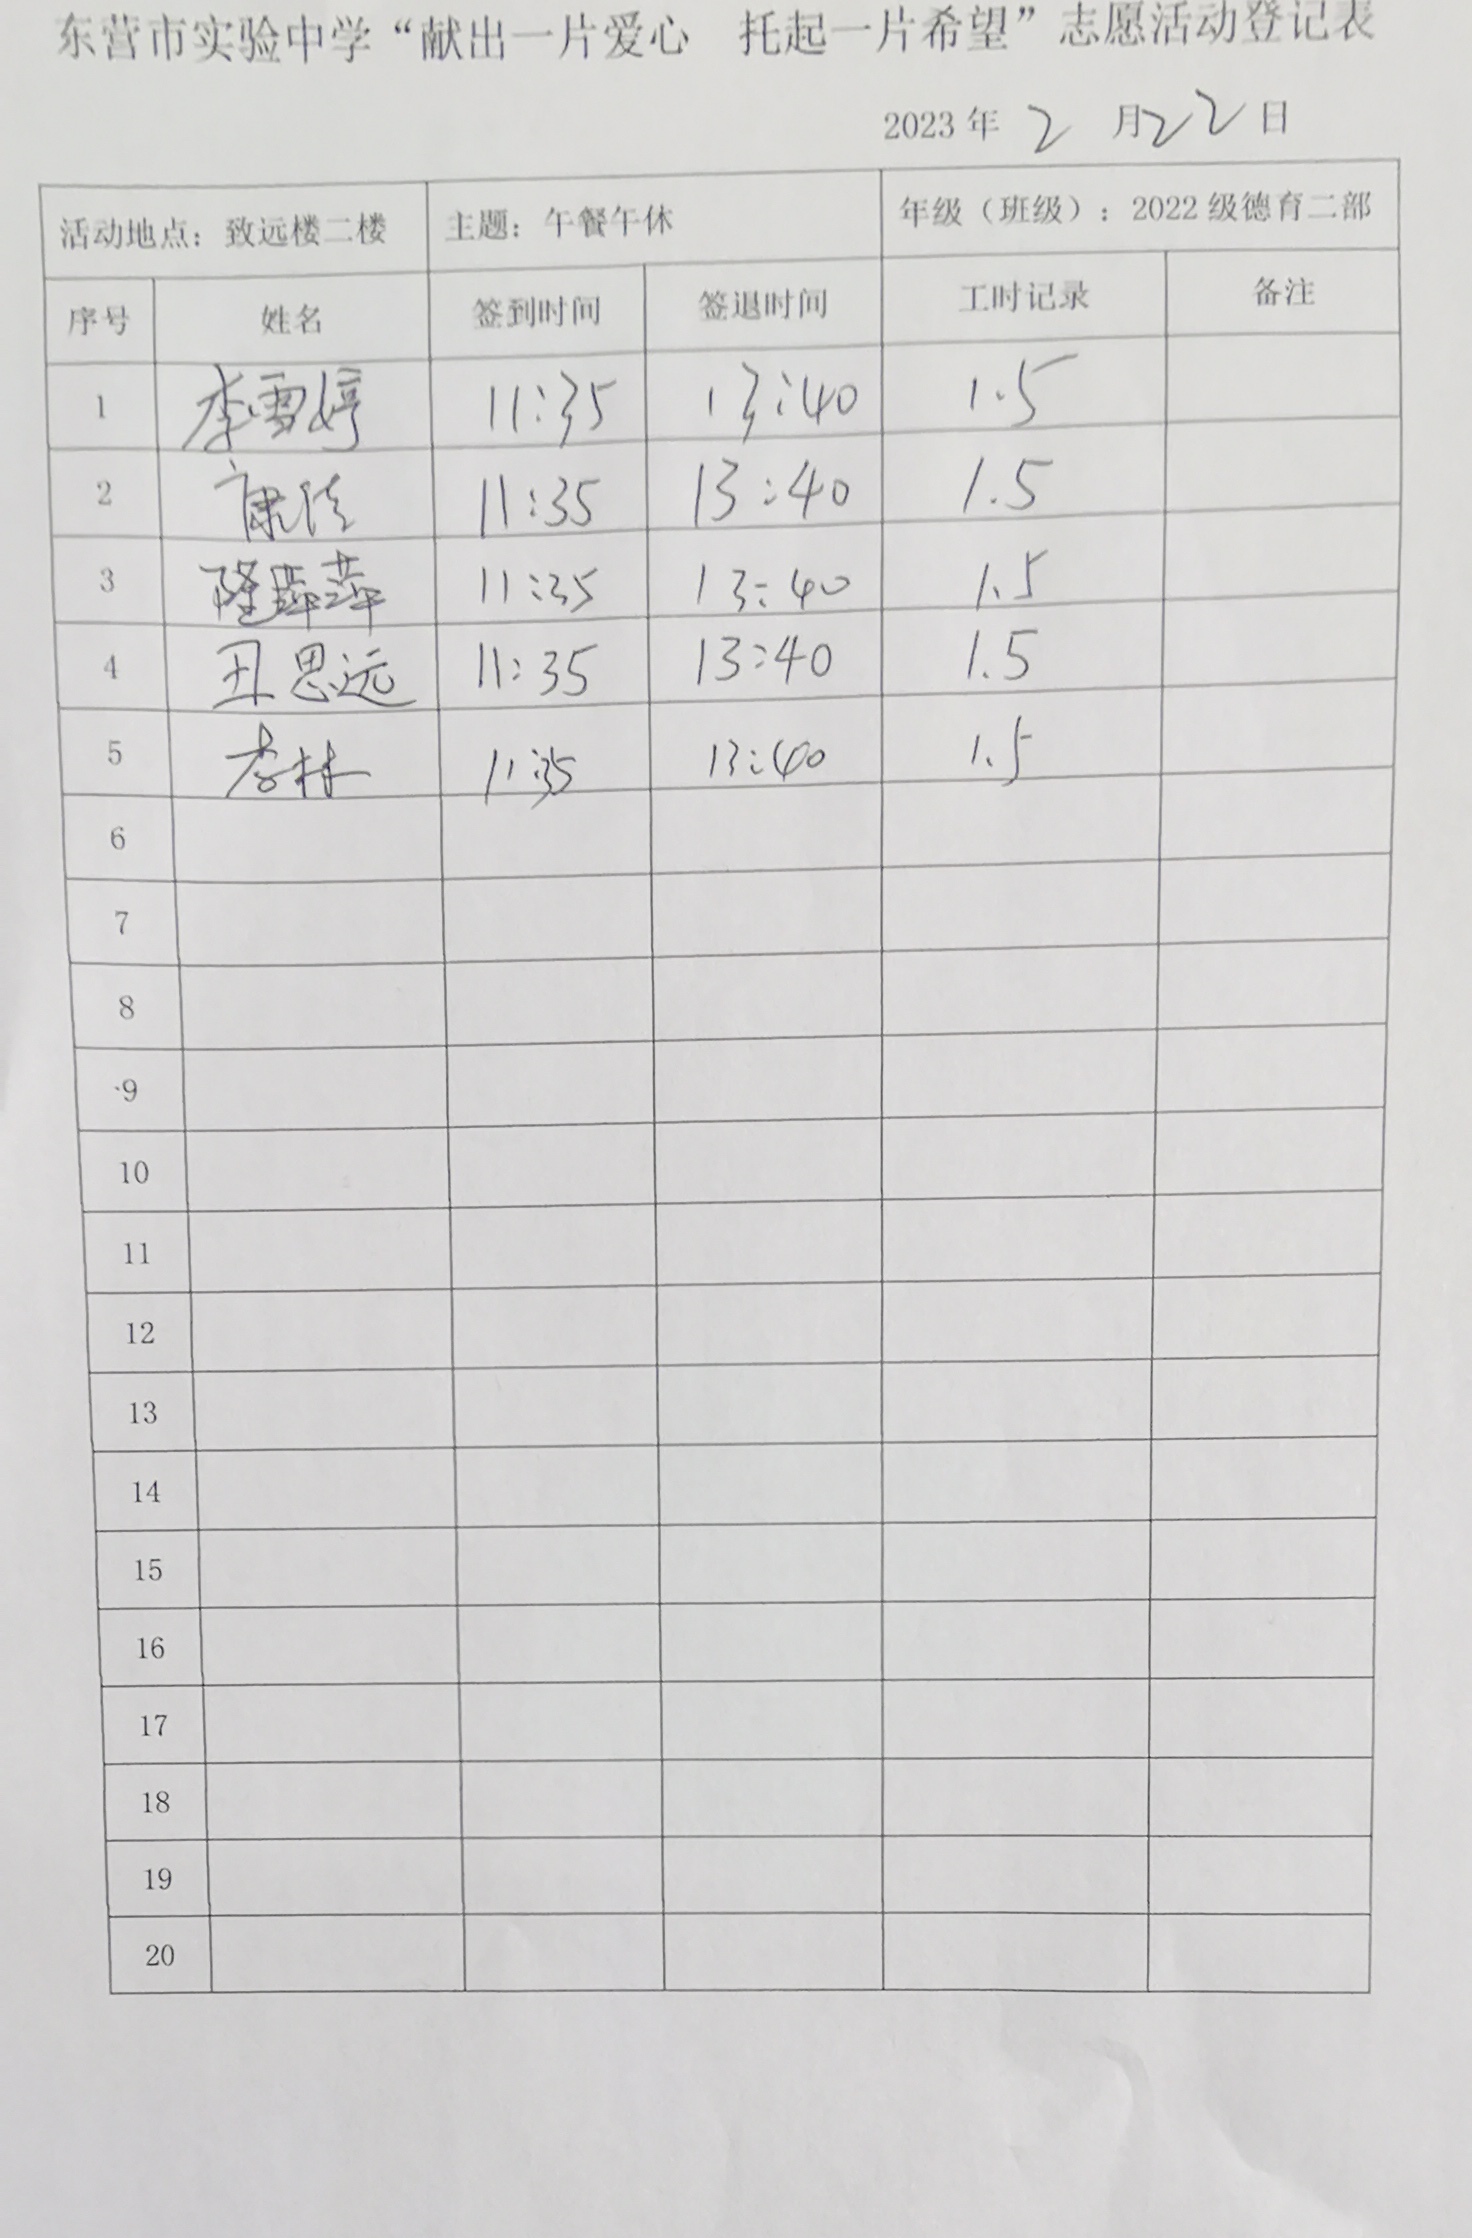 东营市实验中学“献出一片爱心 托起一片希望”志愿活动登记表
2023 年 2 月 22 日
活动地点：致远楼二楼 主题：午餐午休 年级（班级）：2022 级德育二部
序号 姓名 签到时间 签退时间 工时记录 备注
1 李雪婷 11:35 13:40 1.5
2 康佳 11:35 13:40 1.5
3 隆萍萍 11:35 13:40 1.5
4 丑思远 11:35 13:40 1.5
5 李林 11:35 13:40 1.5
6
7
8
9
10
11
12
13
14
15
16
17
18
19
20